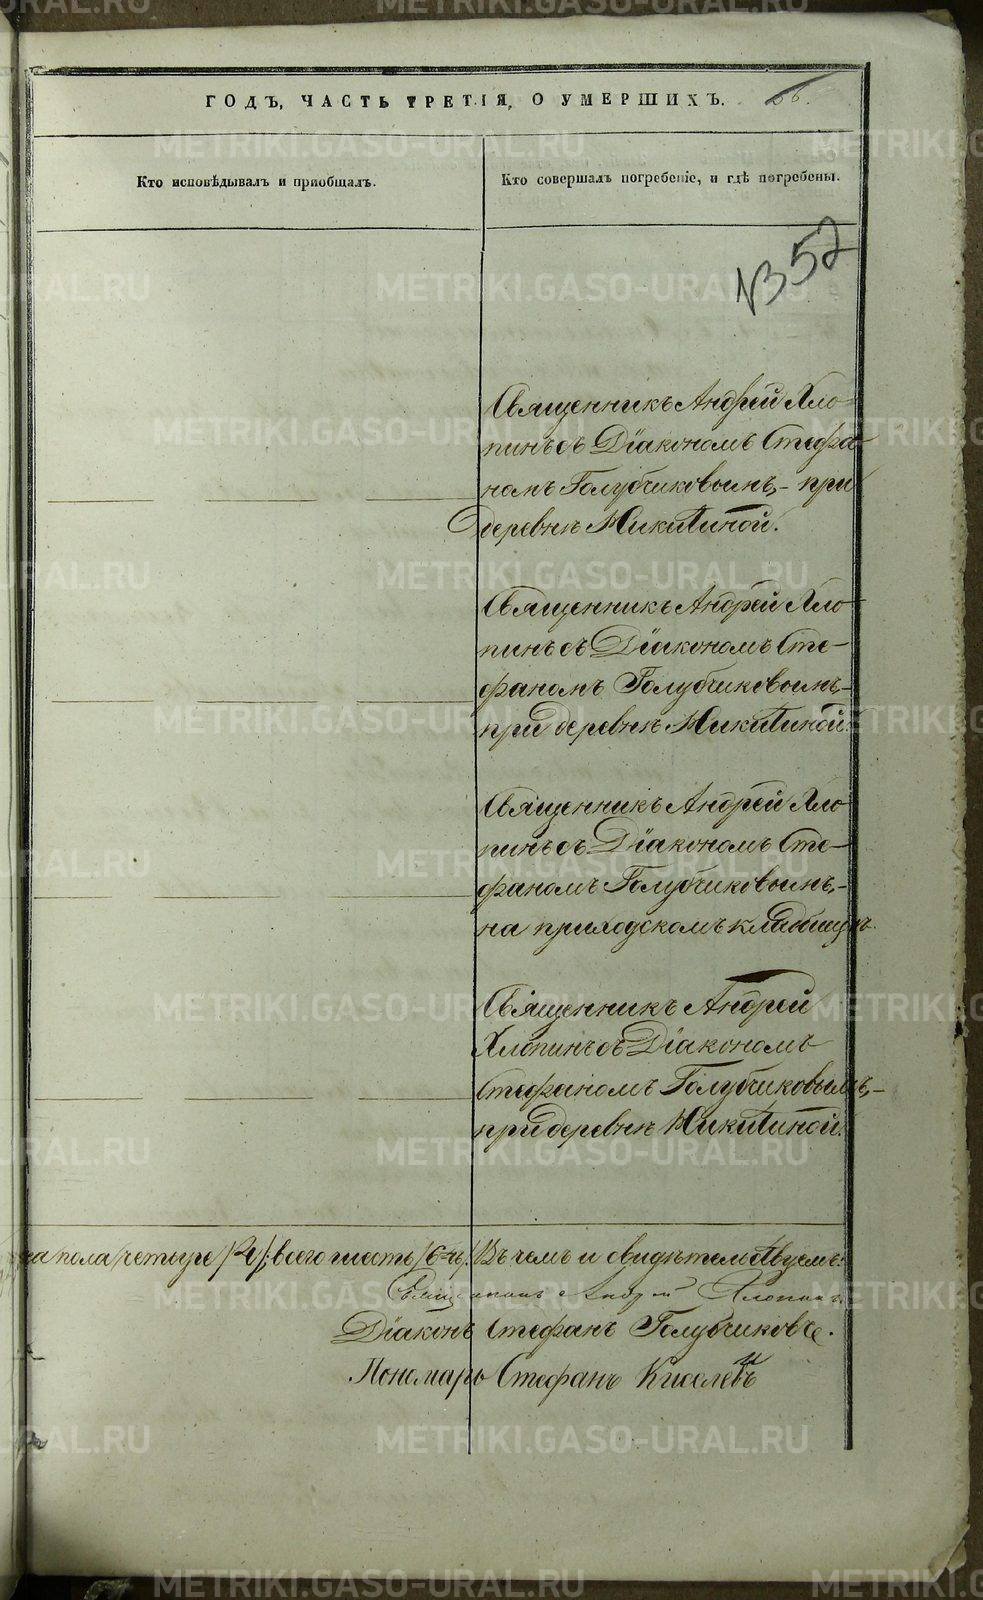 ГОДЪ, ЧАСТЬ ТРЕТІЯ, О УМЕРШИХЪ.
Кто исповѣдывалъ и приобщалъ.
Кто совершалъ погребеніе, и гдѣ погребены.
352
Священникъ Андрей Хло-
пинъ съ Діакономъ Стефа-
номъ Голубчиковымъ,- при
деревнѣ Никитиной.
Священникъ Андрей Хло-
пинъ съ Діакономъ Сте-
фаномъ Голубчиковымъ,-
при деревнѣ Никитиной.
Священникъ Андрей Хло-
пинъ съ Діакономъ Сте-
фаномъ Голубчиковымъ,-
на приходскомъ кладбищѣ.
Священникъ Андрей
Хлопинъ съ Діакономъ
Стефаномъ Голубчиковымъ,-
при деревнѣ Никитиной.
пола четыре /4/; всего шесть /6-ть/. Въ чемъ и свидѣтельствуемъ:
Священникъ Андрей Хлопинъ
Діаконъ Стефанъ Голубчиковъ.
Пономарь Стефанъ Киселевъ
METRIKI.GASO-URAL.RU